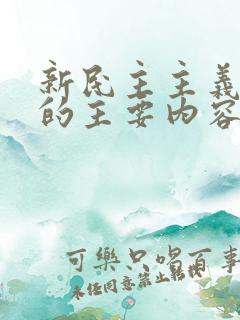 新民主主義
的主要內容
可樂只喝百事
未经同意禁止转载